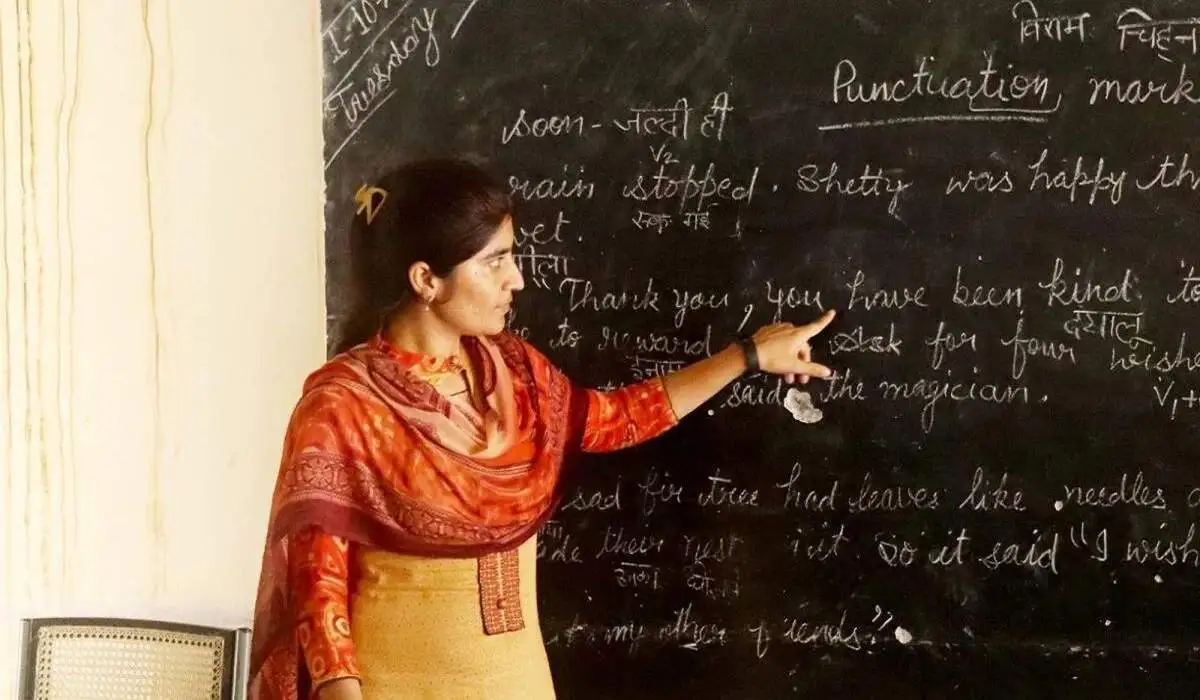 Tuesday
विराम चिहन
Punctuation mark
soon - जल्दी ही
V2
rain stopped. Shetty was happy th
रूक गई
wet.
गीला
"Thank you, you have been kind to
दयालू
to reward Ask for four wish
ईनाम
said the magician. V1+
sad fir tree had leaves like needles
their nest it. So it said "I wish
my other friends."